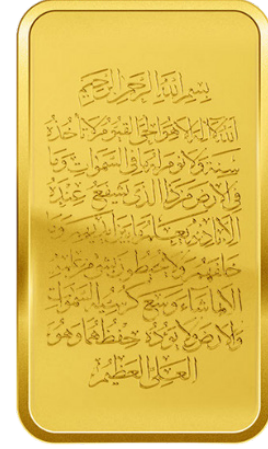 بسم الله الرحمن الرحيم
الله لا إله إلا هو الحي القيوم لا تأخذه
سنة ولا نوم له ما في السموات وما
في الأرض من ذا الذي يشفع عنده
إلا بإذنه يعلم ما بين أيديهم وما
خلفهم ولا يحيطون بشيء من علمه
إلا بما شاء وسع كرسيه السموات
والأرض ولا يؤده حفظهما وهو
العلي العظيم